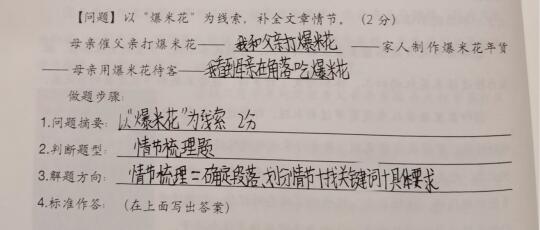 【问题】以“爆米花”为线索，补全文章情节。（2 分）
母亲催父亲打爆米花——我和父亲打爆米花——家人制作爆米花年货
——母亲用爆米花待客——我看到母亲在角落吃爆米花
做题步骤：
1.问题摘要：以“爆米花”为线索 2分
2.判断题型：情节梳理题
3.解题方向：情节梳理=确定段落、划分情节+找关键词+具体要求
4.标准作答：（在上面写出答案）